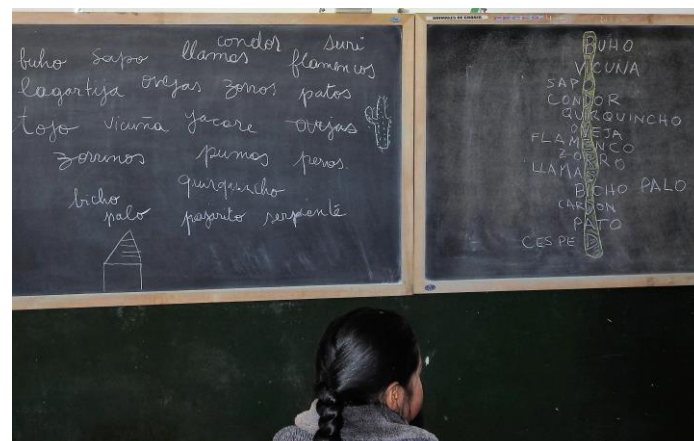 condor suri
buho sapo llamas flamencos
lagartija ovejas zorros patos
tojo vicuña yacare ovejas
zorrinos pumas peros
bicho
palo pajarito serpiente
BUHO
VICUÑA
SAPO
CONDOR
QUIRQUINCHO
OVEJA
FLAMENCO
ZORRO
LLAMAS
BICHO PALO
CARDON
PATO
CESPED